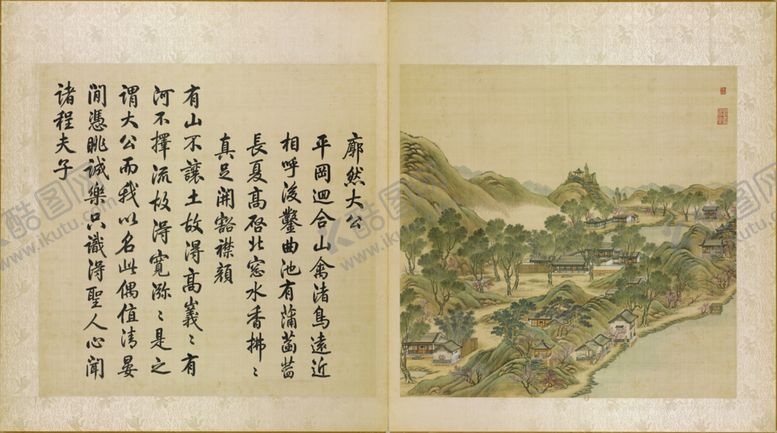 廓然大公
平岡迴合山禽渚鳥遠近
相呼後鑿曲池有蒲菡萏
長夏高啓北窓水香拂〻
真足開豁襟顔
有山不讓土故得高嶬〻有
河不擇流故得寬瀰〻是之
謂大公而我以名此偶值清晏
閒憑眺誠樂只識得聖人心聞
諸程夫子
酷图网
www.ikutu.com